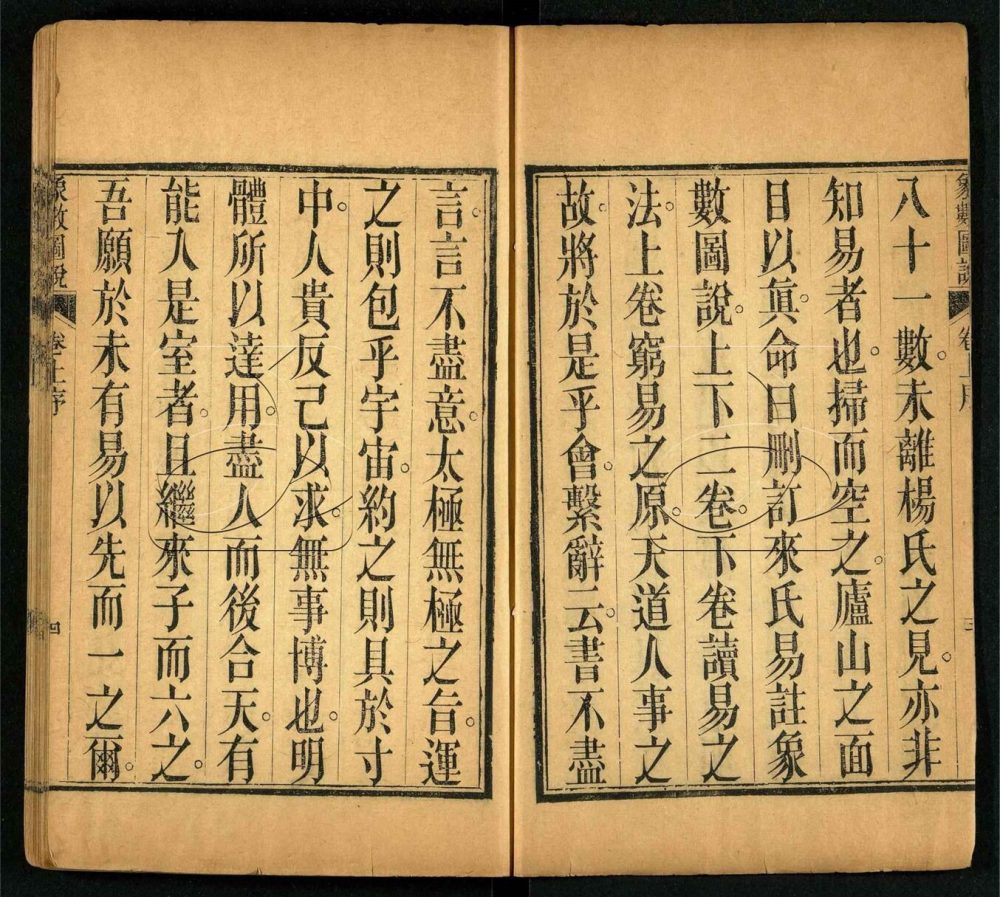 八十一數。未離楊氏之見。亦非
知易者也。掃而空之。廬山之面
目以眞。命曰刪訂來氏易註象
數圖說。上下二卷。下卷讀易之
法。上卷窮易之原。天道人事之
故。將於是乎會。繫辭云。書不盡
象數圖說
卷上序
三
言。言不盡意。太極無極之旨。運
之則包乎宇宙。約之則具於寸
中。人貴反己以求。無事博也。明
體所以達用。盡人而後合天。有
能入是室者。且繼來子而六之。
吾願於未有易以先而一之爾。
象數圖說
卷上序
四